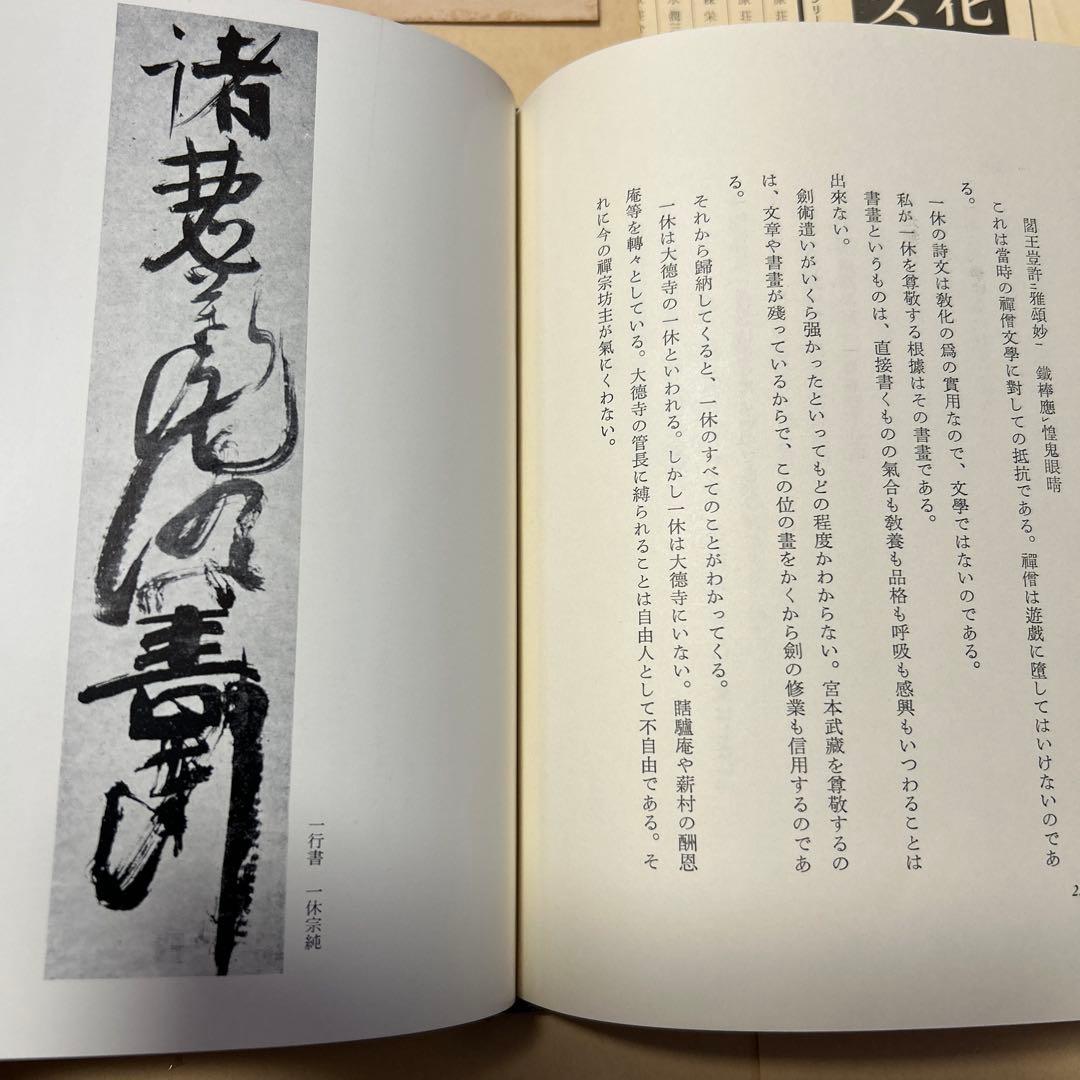 閻王豈許ニ雅頌妙一　鐵棒應レ惶鬼眼睛
これは當時の禪僧文學に對しての抵抗である。禪僧は遊戲に墮してはいけないのであ
る。
一休の詩文は敎化の爲の實用なので、文學ではないのである。
私が一休を尊敬する根據はその書畫である。
書畫というものは、直接書くものの氣合も敎養も品格も呼吸も感興もいつわることは
出來ない。
劍術遣いがいくら强かったといってもどの程度かわからない。宮本武藏を尊敬するの
は、文章や書畫が殘っているからで、この位の畫をかくから劍の修業も信用するのであ
る。
それから歸納してくると、一休のすべてのことがわかってくる。
一休は大德寺の一休といわれる。しかし一休は大德寺にいない。瞎驢庵や薪村の酬恩
庵等を轉々としている。大德寺の管長に縛られることは自由人として不自由である。そ
れに今の禪宗坊主が氣にくわない。
諸惡
一行書　一休宗純
化
ス